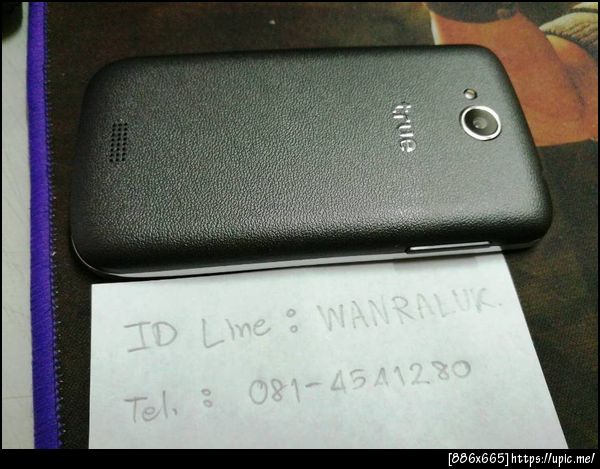 true
ID Line : WANRALUK.
Tel. : 081-4541280
[886x665]https://upic.me/